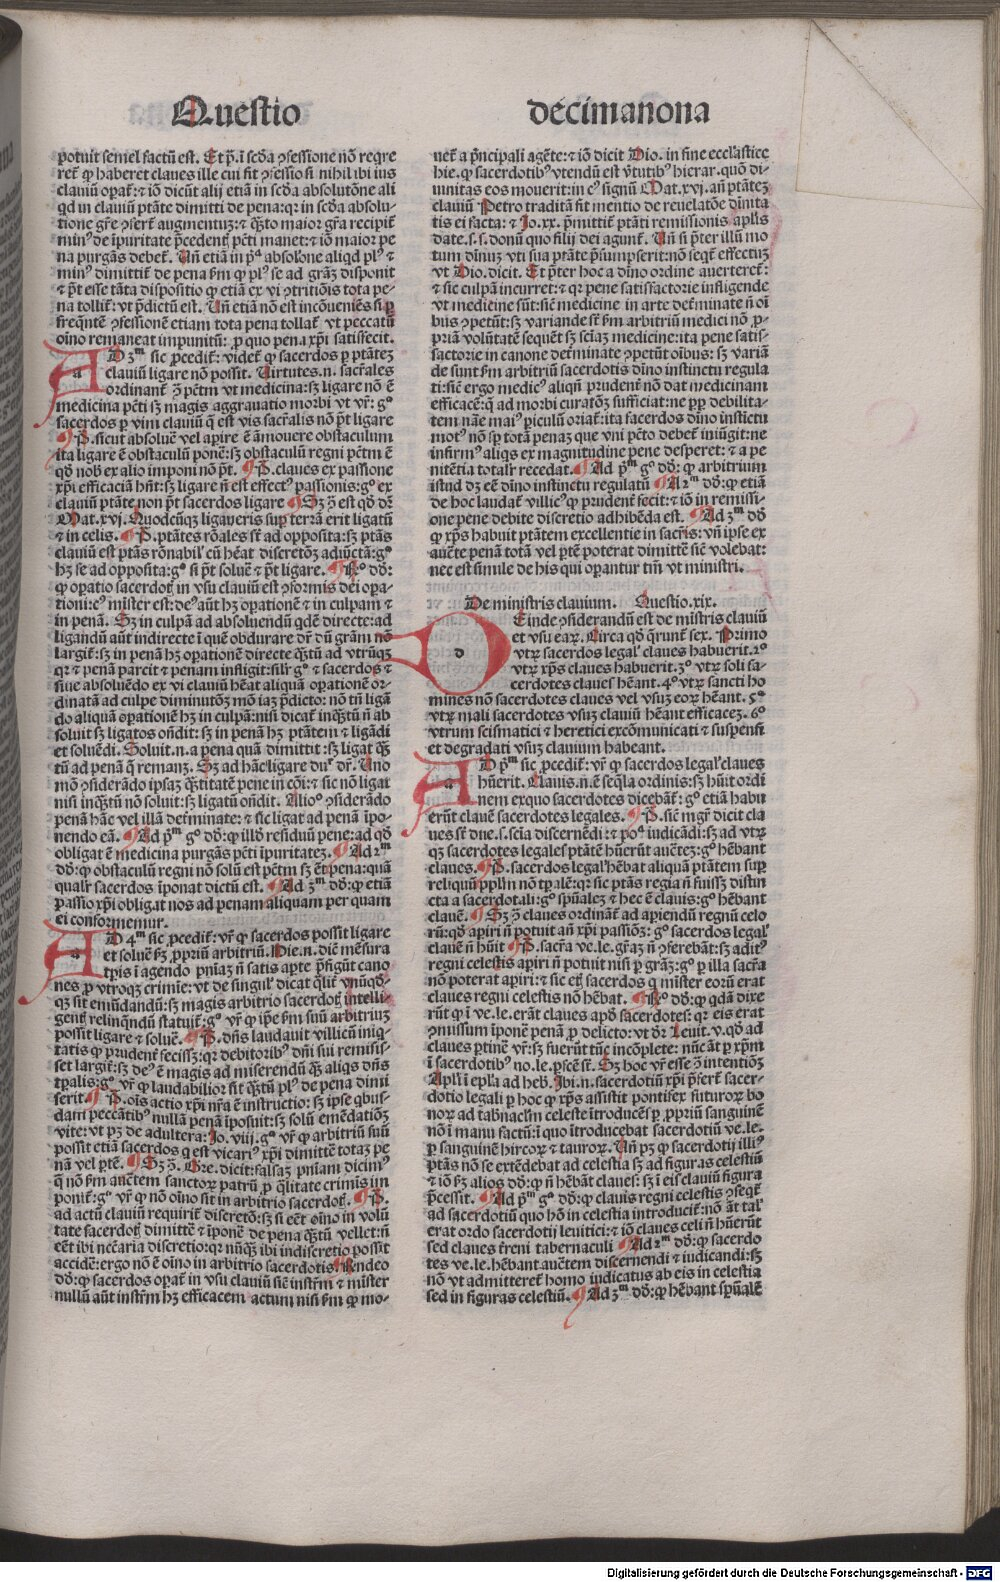 Questio decimanona
potuit semel factū est. Et p̄. ī scd̄a ꝯfessione nō reqre
ret̄ ꝙ haberet claves ille cui fit ꝯfessio si nihil ibi ius
claviū opat̄: ⁊ iō dicūt alij etiā in scd̄a absolutōne ali
qd in claviū ptāte dimitti de pena: qr in scd̄a absolu-
tione gr̄e ꝯfert̄ augmentuꝫ: ⁊ qͣto maior gr̄a recipit̄
minꝰ de īpuritate p̄cedentꝭ pcti manet: ⁊ iō maior pe
na purgās debet̄. Uñ etiā in pͣ absolone aliqd plꝰ ⁊
minꝰ dimittit̄ de pena ẜm ꝙ plꝰ se ad grāꝫ disponit
⁊ p̄t esse tāta dispositio ꝙ etiā ex vi ꝯtritiōis tota pe-
na tollit̄: vt p̄dictū est. Uñ etiā nō est incōueniēs si ꝑ
freqntē ꝯfessionē etiam tota pena tollat̄ vt peccatū
oīno remaneat impunitū: ꝓ quo pena xp̄i satisfecit.
AD 3ᵐ sic ꝓcedit̄: videt̄ ꝙ sacerdos ꝑ ptāteꝫ
claviū ligare nō possit. Uirtutes .n. sacr̄ales
ordinant̄ ꝯ pctm vt medicina: sꝫ ligare nō ē
medicina pcti sꝫ magis aggravatio morbi vt vr̄: gͦ
sacerdos ꝑ vim claviū q̄ est vis sacr̄alis nō p̄t ligare
¶ P. sicut absolue vel apire ē amovere obstaculum
ita ligare ē obstaculū ponē: sꝫ obstaculū regni pctm ē
qd̄ nob̄ ex alio imponi nō p̄t. ¶ P. claves ex passione
xp̄i efficaciā hn̄t: sꝫ ligare n̄ est effectꝰ passionis: gͦ ex
claviū ptāte non p̄t sacerdos ligare ¶ Sꝫ ꝯ est qd̄ dr̄
Mat.xvj. Quodcūqꝫ ligaveris suꝑ terrā erit ligatū
⁊ in celis. ¶ P. ptātes rōales st̄ ad opposita: sꝫ ptās
claviū est ptās rōnabil̄ cū hēat discretōꝫ adiūctā: gͦ
hꝫ se ad opposita: gͦ si p̄t solue ⁊ p̄t ligare. ¶ Rͦ dd̄:
ꝙ opatio sacerdotꝭ in vsu claviū est ꝯformis dei opa-
tioni: cꝰ mister est: deꝰ aūt hꝫ opationē ⁊ in culpam ⁊
in penā. Sꝫ in culpā ad absoluendū qdē directe: ad
ligandū aūt indirecte ī quē obdurare dr̄ dū grām nō
largit̄: sꝫ in penā hꝫ opationē directe qͣtū ad vtrūqꝫ
qr ⁊ penā parcit ⁊ penam infligit: sil̄r gͦ ⁊ sacerdos ⁊
siue absoluēdo ex vi claviū hēat aliquā opationē or-
dinatā ad culpe diminutōꝫ mō iaꝫ p̄dicto: nō tn̄ ligā
do aliquā opationē hꝫ in culpā: nisi dicat̄ inqͣtū n̄ ab
soluit sꝫ ligatos on̄dit: sꝫ in penā hꝫ ptātem ⁊ ligādi
et soluēdi. Soluit .n. a pena quā dimittit: sꝫ ligat qͣ
tū ad penā q̄ remanꝫ. Sꝫ ad hāc ligare dul̄ dr̄. Uno
mō ꝯsiderādo ipsaꝫ qͣtitatē pene in cōi: ⁊ sic nō ligat
nisi inqͣtū nō soluit: sꝫ ligatū on̄dit. Alioͦ ꝯsiderādo
penā hāc vel illā determinate: ⁊ sic ligat ad penā īpo-
nendo eā. ¶ Ad pᵐ gͦ dd̄: ꝙ illd̄ residuū pene: ad qd̄
obligat ē medicina purgās pcti īpuritateꝫ. ¶ Ad 2ᵐ
dd̄: ꝙ obstaculū regni nō solū est pctm sꝫ ēt pena: quā
qualr̄ sacerdos īponat dictū est. ¶ Ad 3ᵐ dd̄: ꝙ etiā
passio xp̄i obligat nos ad penam aliquam per quam
ei conformemur.
AD 4ᵐ sic ꝓcedit̄: vr̄ ꝙ sacerdos possit ligare
et soluē ẜm ꝓpriū arbitriū. Hie .n. dic̄ mēsura
tpis ī agendo pn̄iaꝫ n̄ satis apte p̄figūt cano
nes ꝓ vtroqꝫ crimīe: vt de singul̄ dicat qlit̄ vnūqd̄-
qꝫ sit emēdandū: sꝫ magis arbitrio sacerdotꝭ intelli-
gentꝭ relinqndū statuit̄: gͦ vr̄ ꝙ ip̄e ẜm suū arbitriuꝫ
possit ligare ⁊ soluē. ¶ P. dn̄s laudavit villicū iniq
tatis ꝙ prudent̄ fecissꝫ: qr debitoribꝰ dn̄i sui remisis-
set largit̄: sꝫ deꝰ ē magis ad miserendū qͣ aliqs dn̄s
tp̄alis: gͦ vr̄ ꝙ laudabilior sit qͣtū plꝰ de pena dimi
serit ¶ P. oīs actio xp̄i nr̄a ē instructio: sꝫ ipse qbus-
dam peccātibꝰ nullā penā īposuit: sꝫ solū emēdatiōꝫ
vite: vt pꝫ de adultera: Jo.viij. gͦ vr̄ ꝙ arbitriū suū
possit etiā sacerdos q est vicariꝰ xp̄i dimittē totaꝫ pe
nā vel p̄tē. ¶ Sꝫ ꝯ. Gre. dicit: falsaꝫ pn̄iam dicimꝰ
q̄ nō ẜm auctem sanctoꝝ patrū ꝓ qͣlitate crimis im
ponit̄: gͦ vr̄ ꝙ nō oīno sit in arbitrio sacerdotꝭ. ¶ P.
ad actū claviū requirit̄ discretō: sꝫ si eēt oīno in volū
tate sacerdotꝭ dimittē ⁊ īponē de pena qͣtū vellet: n̄
eēt ibi nēc̄aria discretio: qr nūqꝫ ibi indiscretio possit
accidē: ergo nō ē oīno in arbitrio sacerdotis ¶ Rendeo
dd̄: ꝙ sacerdos opat̄ in vsu claviū sic̄ instrm̄ ⁊ mister
nullū aūt instrm̄ hꝫ efficacem actum nisi ẜm ꝙ mo-
uet̄ a p̄ncipali agēte: ⁊ iō dicit Dio. in fine ecclastice
hie. ꝙ sacerdotibꝰ vtendū est v̄tutibꝰ hierar. quō di-
uinitas eos moverit: in cꝰ signū Mat.xvj. an̄ ptāteꝫ
claviū Petro traditā fit mentio de revelatōe divīta
tis ei facta: ⁊ Jo.xx. p̄mittit̄ ptāti remissionis aplis
date .s.s. donū quo filij dei agunt̄. Uñ si p̄ter illū mo
tum divinū vti sua ptāte p̄sumpserit: nō seqt̄ effectuꝫ
vt Dio. dicit. Et p̄ter hoc a dīno ordine averteret̄:
⁊ sic culpā incurret: ⁊ qr pene satisfactorie infligende
vt medicine sūt: sic̄ medicine in arte determinate n̄ oī
bus ꝯpetūt: sꝫ variande st̄ ẜm arbitriū medici nō ꝓ-
priā volūtatē sequēt̄ sꝫ sciaꝫ medicine: ita pene satis-
factorie in canone determinate ꝯpetūt oībus: sꝫ variā
de sunt ẜm arbitriū sacerdotis dīno instinctu regula
ti: sic̄ ergo medicꝰ aliqn̄ prudent̄ nō dat medicinam
efficacē: q̄ ad morbi curatōꝫ sufficiat: ne ꝓp debilita-
tem nāe maiꝰ piculū oriat̄: ita sacerdos dīno instictu
motꝰ nō sp̄ totā penaꝫ que vni pcto debet̄ iniūgit: ne
infirmꝰ aliqs ex magnitudine pene desperet: ⁊ a pe
nitētia totalr̄ recedat. ¶ Ad pᵐ gͦ dd̄: ꝙ arbitrium
istud dꝫ eē dīno instinctu regulatū ¶ Ad 2ᵐ dd̄: ꝙ etiā
de hoc laudat̄ villicꝰ ꝙ prudent̄ fecit: ⁊ iō in remissi-
one pene debite discretio adhibēda est. ¶ Ad 3ᵐ dd̄
ꝙ xp̄s habuit ptātem excellentie in sacr̄is: vñ ipse ex
auctē penā totā vel p̄tē poterat dimittē sic̄ volebat:
nec est simile de his qui opantur tm̄ vt ministri.
De ministris clavium. Questio.xix.
DEinde ꝯsiderandū est de mīstris claviū
et vsu eaꝝ. Circa qd̄ qrunt̄ sex. Primo
vtrꝫ sacerdos legal̄ claves habuerit. 2ͦ
vtrꝫ xp̄s claves habuerit. 3ͦ vtrꝫ soli sa-
cerdotes claves hēant. 4ͦ vtrꝫ sancti ho
mines nō sacerdotes claves vel vsuꝫ eoꝝ hēant. 5ͦ
vtrꝫ mali sacerdotes vsuꝫ claviū hēant efficaceꝫ. 6ͦ
vtrum scismatici ⁊ heretici excōmunicati ⁊ suspensi
et degradati vsuꝫ clavium habeant.
AD pᵐ sic ꝓcedit̄: vr̄ ꝙ sacerdos legal̄ claves
hūerit. Clavis .n. ē seqla ordinis: sꝫ hūit ordi
nem exquo sacerdotes dicebāt̄: gͦ etiā habu
erūt clavē sacerdotes legales. ¶ P. sic̄ mgr̄ dicit cla
ves st̄ due .s. scīa discernēdi: ⁊ poᵃ iudicādi: sꝫ ad vtrꝫ
qꝫ sacerdotes legales ptātē hūerūt auctēꝫ: gͦ hēbant
claves. ¶ P. sacerdos legal̄ hēbat aliquā ptātem suꝑ
reliquū pplm nō tp̄alē: qr sic ptās regia n̄ fuissꝫ distin
cta a sacerdotali: gͦ spūaleꝫ ⁊ hec ē clavis: gͦ hēbant
clavē. ¶ Sꝫ ꝯ claves ordinant̄ ad apiendū regnū celo
rū: qd̄ apiri n̄ potuit an̄ xp̄i passiōꝫ: gͦ sacerdos legal̄
clavē n̄ hūit ¶ P. sacr̄a ve. le. gr̄aꝫ n̄ ꝯferebāt: sꝫ aditꝰ
regni celestis apiri n̄ potuit nisi ꝑ grāꝫ: gͦ ꝑ illa sacr̄a
nō poterat apiri: ⁊ sic etꝫ sacerdos q mister eoꝝ erat
claves regni celestis nō hēbat. ¶ Rͦ dd̄: ꝙ qdā dixe
rūt ꝙ ī ve. le. erāt claves apd̄ sacerdotes: qr eis erat
ꝯmissum īponē penā ꝓ delicto: vt dr̄ Levit.v. qd̄ ad
claves ptinē vr̄: sꝫ fuerūt tūc incōplete: nūc āt ꝑ xp̄m
ī sacerdotibꝰ no. le. pfcē st̄. Sꝫ hoc vr̄ esse ꝯ intentiōꝫ
Apl̄i ī epl̄a ad heb. Ibi .n. sacerdotiū xp̄i p̄fert̄ sacer-
dotio legali ꝑ hoc ꝙ xp̄s assistit pontifex futuroꝝ bo
noꝝ ad tab̄nacl̄m celeste ītroducēs ꝑ ꝓpriū sanguinē
nō ī manu factū: ī quo ītroducebat sacerdotiū ve. le.
ꝑ sanguinē hircoꝝ ⁊ tauroꝝ. Uñ pꝫ ꝙ sacerdotij illiꝰ
ptās nō se extēdebat ad celestia sꝫ ad figuras celestiū
⁊ iō ẜm alios dd̄: ꝙ n̄ hēbāt claves: sꝫ ī eis claviū figura
p̄cessit. ¶ Ad pᵐ gͦ dd̄: ꝙ clavis regni celestis ꝯseqt̄
ad sacerdotiū quo hō in celestia introducit̄: nō āt tal̄
erat ordo sacerdotij levitici: ⁊ iō claves celi n̄ hūerūt
sed claves tr̄eni tabernaculi ¶ Ad 2ᵐ dd̄: ꝙ sacerdo
tes ve. le. hēbant auctem discernendi ⁊ iudicandi: sꝫ
nō vt admitteret̄ homo iudicatus ab eis in celestia
sed in figuras celestiū. ¶ Ad 3ᵐ dd̄: ꝙ hēbant spūalē
Digitalisierung gefördert durch die Deutsche Forschungsgemeinschaft - DFG